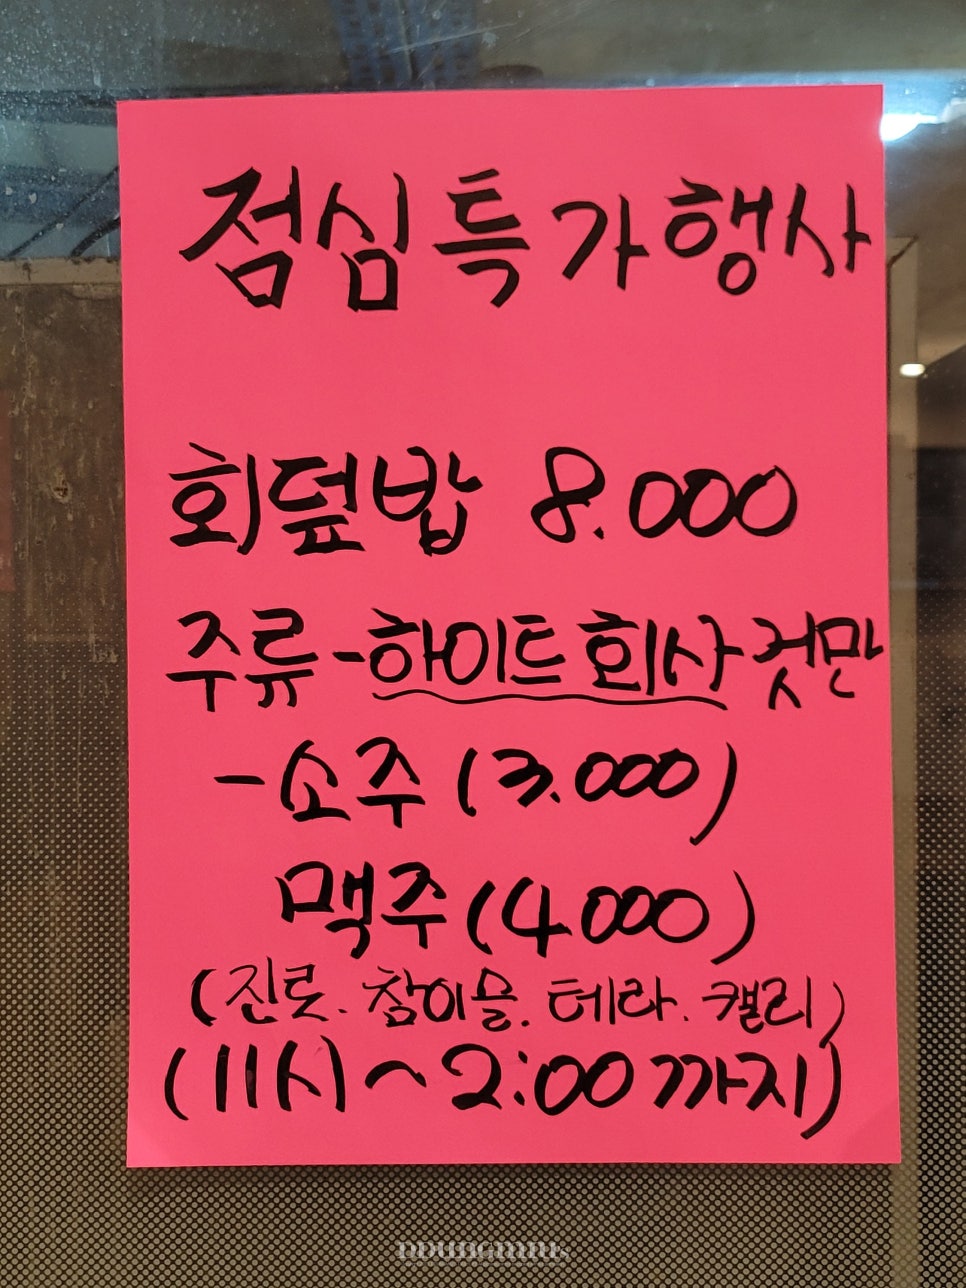 점심특가행사
회덮밥 8.000
주류-하이트회사것만
-소주(3.000)
맥주(4.000)
(진로.참이슬.테라.켈리)
(11시~2:00까지)